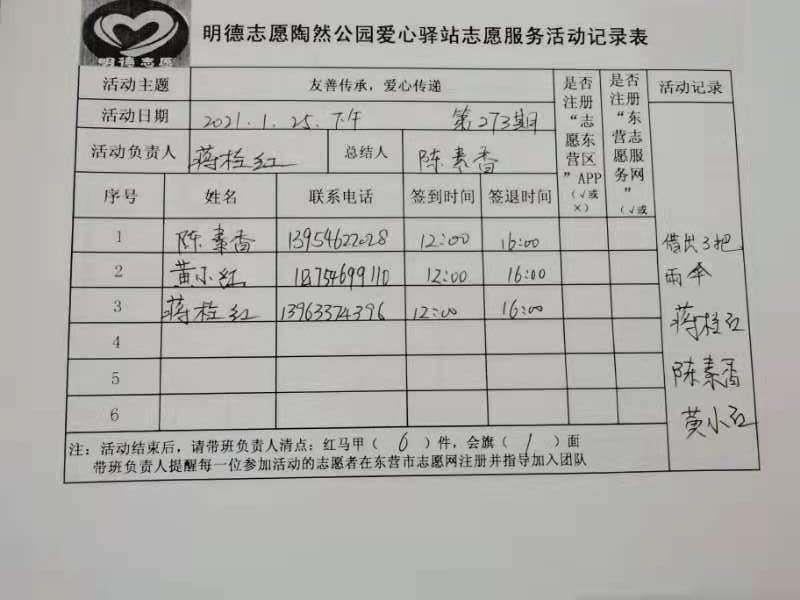 明德志愿陶然公园爱心驿站志愿服务活动记录表
明德志愿
活动主题 友善传承，爱心传递 是否注册“志愿东营区”APP（√或×） 是否注册“东营志愿服务网”（√或 活动记录
活动日期 2021.1.25.下午 第273期
活动负责人 蒋栓红 总结人 陈素香
序号 姓名 联系电话 签到时间 签退时间
1 陈素香 13954622028 12:00 16:00
2 黄小红 18754699110 12:00 16:00
3 蒋栓红 13963374396 12:00 16:00
4
5
6
借出3把
雨伞
蒋栓红
陈素香
黄小红
注：活动结束后，请带班负责人清点：红马甲（ 6 ）件，会旗（ 1 ）面
带班负责人提醒每一位参加活动的志愿者在东营市志愿网注册并指导加入团队